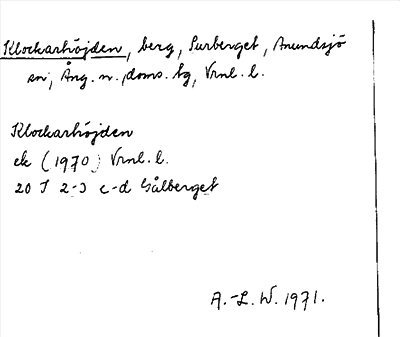 Klockarhöjden, berg, Surberget, Anundsjö
sn, Ång. n. doms. tg, Vrnl. l.
Klockarhöjden
ek (1970) Vrnl. l.
20 J 2-3 c-d Gålberget
A.-L. W. 1971.